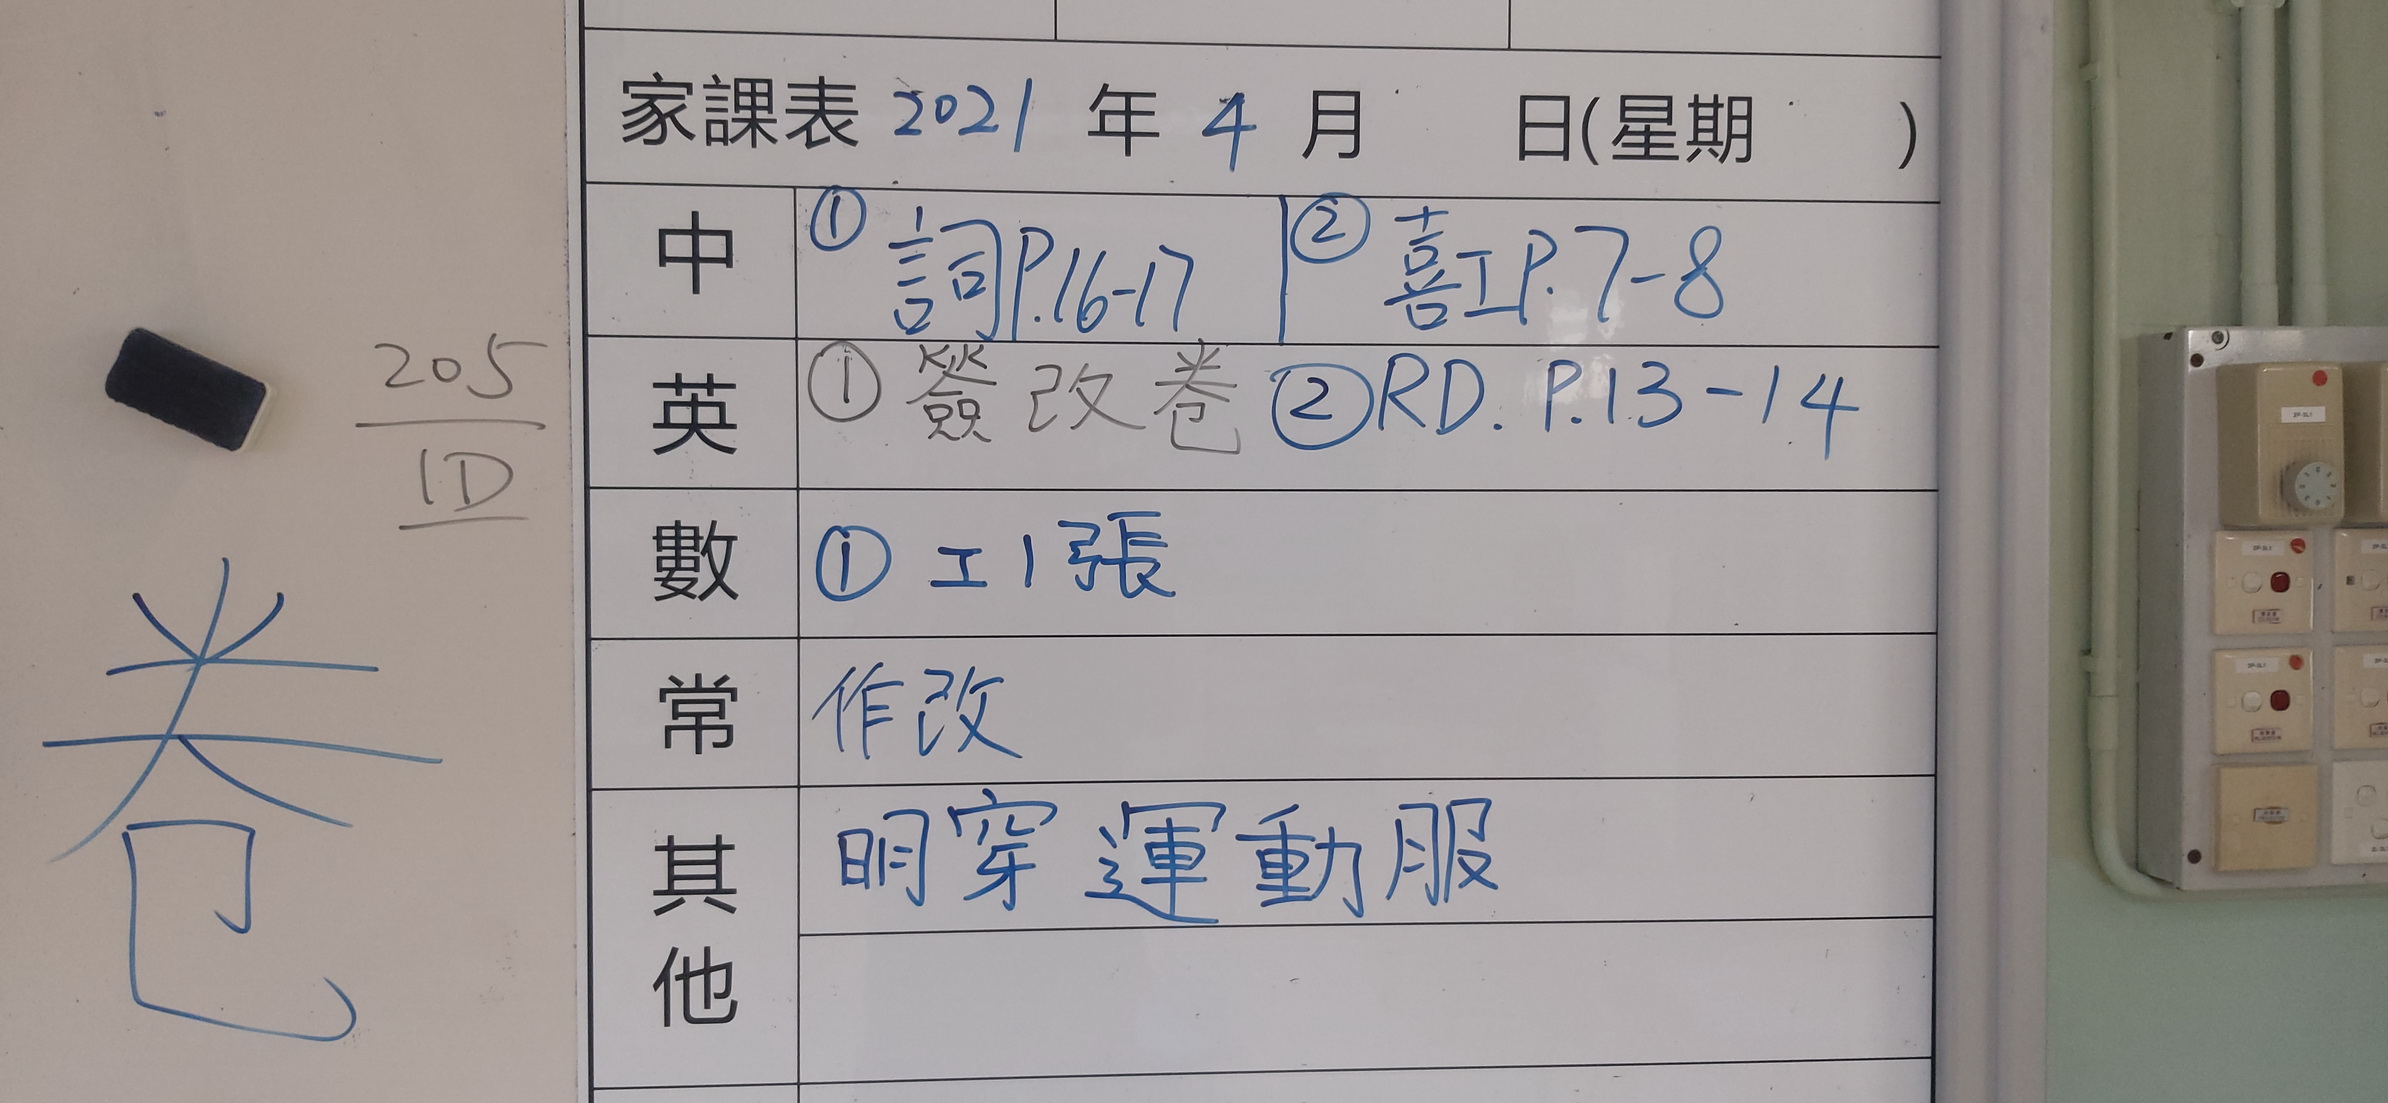 家課表 2021 年 4 月 日(星期 )
中 ① 詞P.16-17 ② 喜工P.7-8
英 ① 簽改卷 ② RD. P.13-14
數 ① 工1張
常 作改
其他 明穿運動服
205
1D
卷